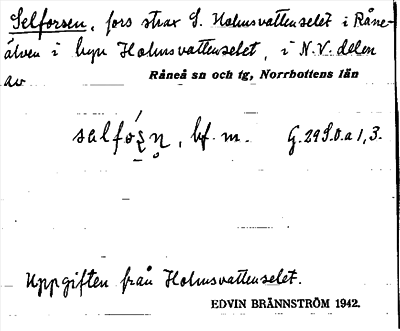 Selforsen, fors strax S. Holmsvattenselet i Råne-
älven i byn Holmsvattenselet, i N.V. delen
av Råneå sn och tg, Norrbottens län
bf. m. G. 29 S.0.a 1,3.
Uppgiften från Holmsvattenselet.
EDVIN BRÄNNSTRÖM 1942.